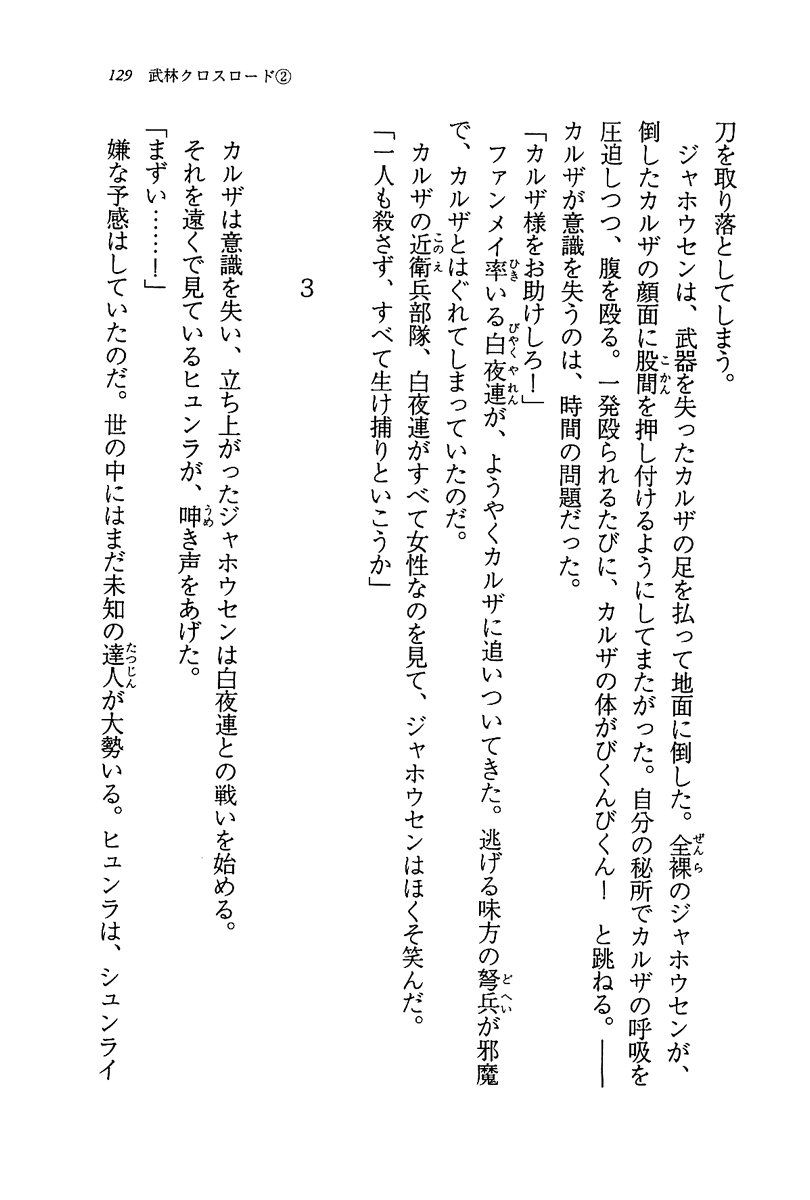 129 武林クロスロード②
刀を取り落としてしまう。
ジャホウセンは、武器を失ったカルザの足を払って地面に倒した。全裸のジャホウセンが、
倒したカルザの顔面に股間を押し付けるようにしてまたがった。自分の秘所でカルザの呼吸を
圧迫しつつ、腹を殴る。一発殴られるたびに、カルザの体がびくんびくん！　と跳ねる。――
カルザが意識を失うのは、時間の問題だった。
「カルザ様をお助けしろ！」
ファンメイ率いる白夜連が、ようやくカルザに追いついてきた。逃げる味方の弩兵が邪魔
で、カルザとはぐれてしまっていたのだ。
カルザの近衛兵部隊、白夜連がすべて女性なのを見て、ジャホウセンはほくそ笑んだ。
「一人も殺さず、すべて生け捕りといこうか」
3
カルザは意識を失い、立ち上がったジャホウセンは白夜連との戦いを始める。
それを遠くで見ているヒュンラが、呻き声をあげた。
「まずい……！」
嫌な予感はしていたのだ。世の中にはまだ未知の達人が大勢いる。ヒュンラは、シュンライ